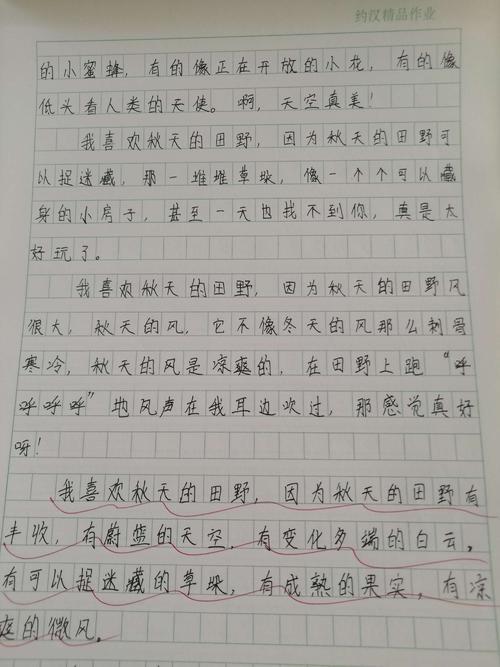 约汉精品作业
的小蜜蜂，有的像正在开放的小花，有的像
低头看人类的天使。啊，天空真美！
我喜欢秋天的田野，因为秋天的田野可
以捉迷藏，那一堆堆草垛，像一个个可以藏
身的小房子，甚至一天也找不到你，真是太
好玩了。
我喜欢秋天的田野，因为秋天的田野风
很大，秋天的风，它不像冬天的风那么刺哥
寒冷，秋天的风是凉爽的，在田野上跑“呼
呼呼呼”地风声在我耳边吹过，那感觉真好
呀！
我喜欢秋天的田野，因为秋天的田野有
丰收，有蔚篮的天空，有变化多端的白云，
有可以捉迷藏的草垛，有成熟的果实，有凉
爽的微风。